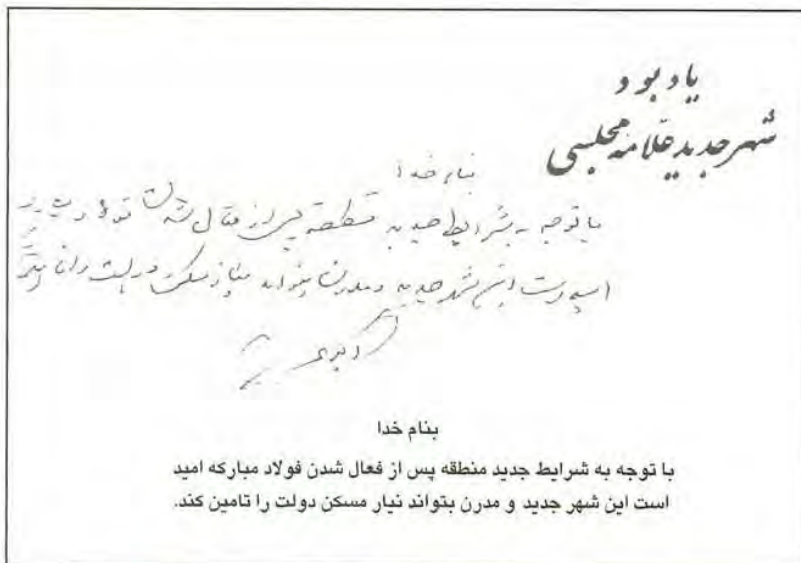 یاد بود
شهر جدید علامه مجلسی
بنام خدا
با توجه به شرایط جدید منطقه پس از فعال شدن
است این شهر جدید و مدرن بتواند نیاز مسکن دولت را
بنام خدا
با توجه به شرایط جدید منطقه پس از فعال شدن فولاد مبارکه امید
است این شهر جدید و مدرن بتواند نیار مسکن دولت را تامین کند.